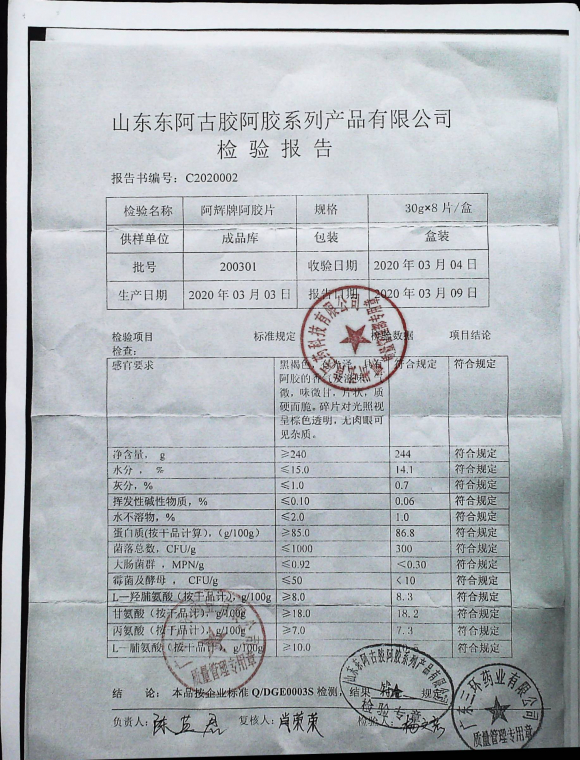 山东东阿古胶阿胶系列产品有限公司
检验报告
报告书编号：C2020002
检验名称 阿辉牌阿胶片 规格 30g×8片/盒
供样单位 成品库 包装 盒装
批号 200301 收验日期 2020年03月04日
生产日期 2020年03月03日 报告日期 2020年03月09日
检验项目 标准规定 检验数据 项目结论
检查：
感官要求 黑褐色 符合规定 符合规定
阿胶的
微，味微甘，片状，质
硬而脆。碎片对光照视
呈棕色透明，无肉眼可
见杂质。
净含量，g ≥240 244 符合规定
水分，% ≤15.0 14.1 符合规定
灰分，% ≤1.0 0.7 符合规定
挥发性碱性物质，% ≤0.10 0.06 符合规定
水不溶物，% ≤2.0 1.0 符合规定
蛋白质(按干品计算)，(g/100g) ≥85.0 86.8 符合规定
菌落总数，CFU/g ≤1000 300 符合规定
大肠菌群，MPN/g ≤0.92 <0.30 符合规定
霉菌及酵母，CFU/g ≤50 <10 符合规定
L—羟脯氨酸（按干品计），g/100g ≥8.0 8.3 符合规定
甘氨酸（按干品计），g/100g ≥18.0 18.2 符合规定
丙氨酸（按干品计），g/100g ≥7.0 7.3 符合规定
L—脯氨酸（按干品计），g/100g ≥10.0 符合规定
质量管理专用章
结 论：本品按企业标准Q/DGE0003S检测，结果 符合 规定
山东东阿古胶阿胶系列产品有限公司
检验专章
广东三环药业有限公司
质量管理专用章
负责人： 复核人：肖荣荣 检验人：